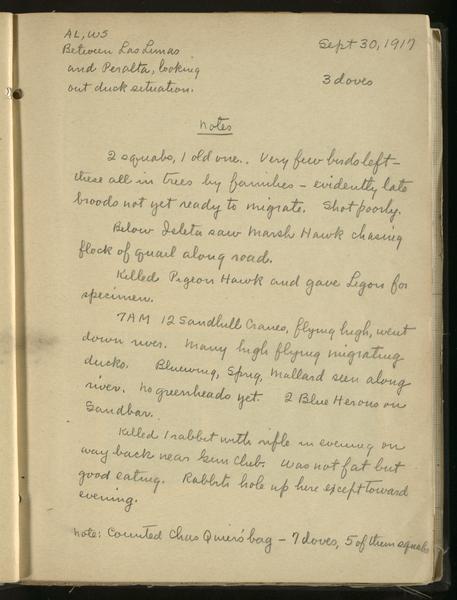 AL, WS
Sept 30, 1917
Between Los Lunas
and Peralta, looking
out duck situation.
3 doves
Notes
2 squabs, 1 old one.. Very few birds left -
these all in trees by families - evidently late
broods not yet ready to migrate. Shot poorly.
Below Isleta saw Marsh Hawk chasing
flock of quail along road.
Killed Pigeon Hawk and gave Ligon for
specimen.
7AM 12 Sandhill Cranes, flying high, went
down river. Many high flying migrating
ducks. Bluewing, Sprig, Mallard seen along
river. No greenheads yet. 2 Blue Herons on
Sandbar.
Killed 1 rabbit with rifle in evening on
way back near Gun Club. Was not fat but
good eating. Rabbits hole up here except toward
evening.
Note: Counted Chas Quier's bag - 7 doves, 5 of them squabs